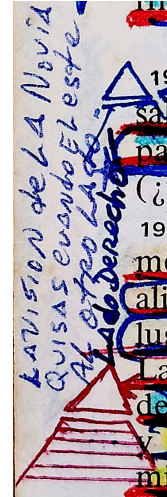 LA VISION de LA NOViA
QUiSAS cuando EL este
AL otro LADO
LAdo Derecho
19
sa
pa
(¿
19
me
ali
lug
La
de
y
mi